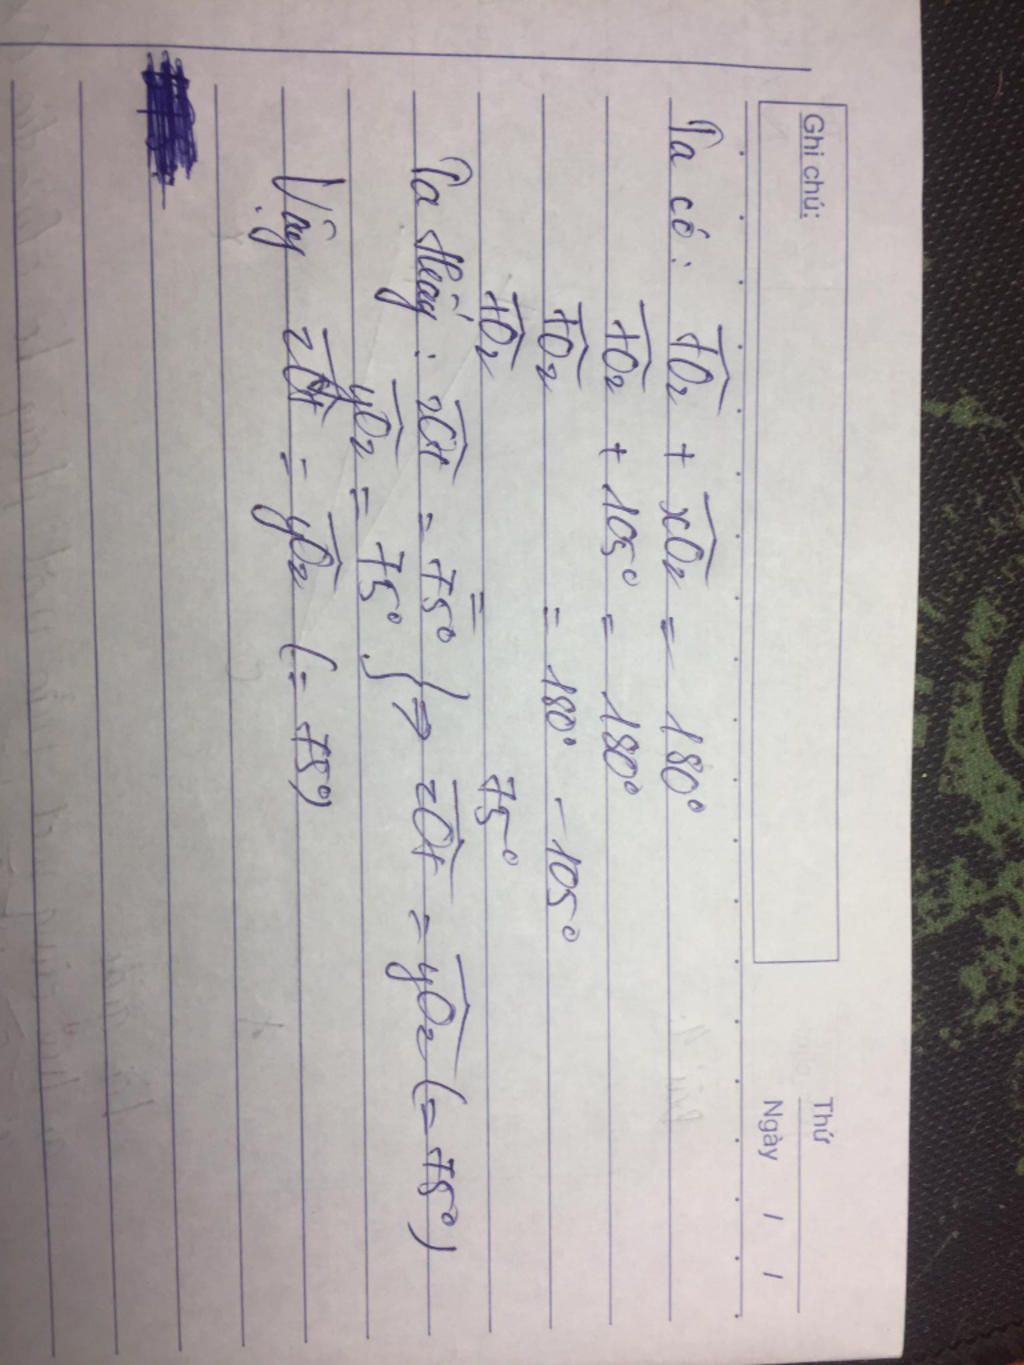 Ghi chú:
Thứ
Ngày / /
Ta có: tOz + xOz = 180°
tOz + 105° = 180°
tOz = 180° - 105°
tOz = 75°
Ta thấy: zOt = 75°
yOz = 75° } => zOt = yOz (= 75°)
Vậy zOt = yOz (= 75°)